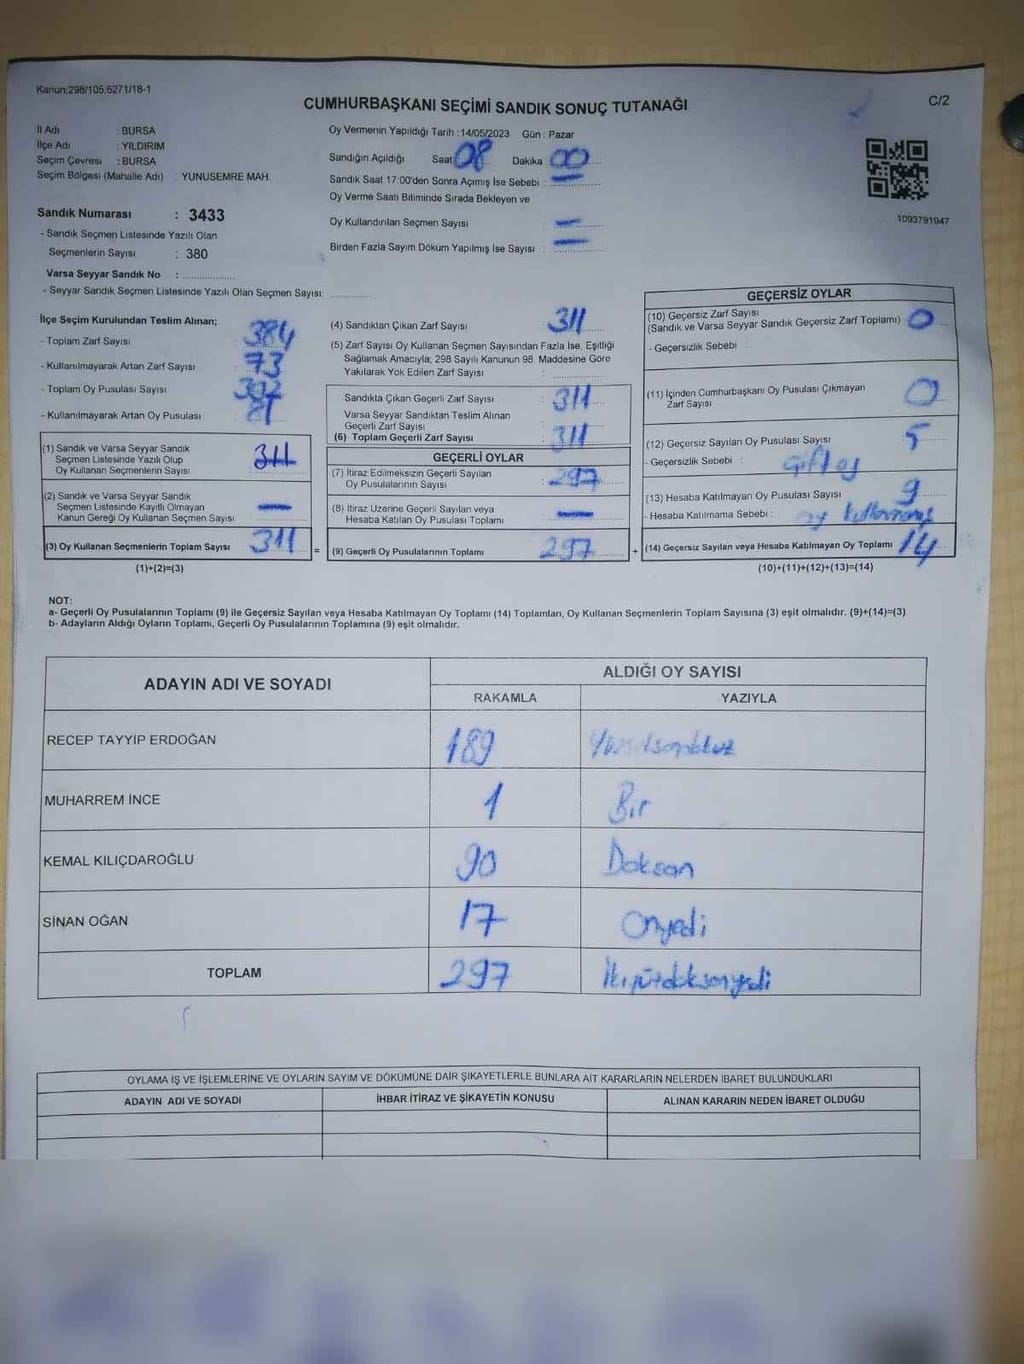 Kanun;298/105;6271/18-1
CUMHURBAŞKANI SEÇİMİ SANDIK SONUÇ TUTANAĞI
C/2
İl Adı : BURSA
İlçe Adı : YILDIRIM
Seçim Çevresi : BURSA
Seçim Bölgesi (Mahalle Adı) : YUNUSEMRE MAH.
Sandık Numarası : 3433
- Sandık Seçmen Listesinde Yazılı Olan
Seçmenlerin Sayısı : 380
Varsa Seyyar Sandık No :
- Seyyar Sandık Seçmen Listesinde Yazılı Olan Seçmen Sayısı:
Oy Vermenin Yapıldığı Tarih :14/05/2023 Gün : Pazar
Sandığın Açıldığı Saat 08 Dakika 00
Sandık Saat 17:00'den Sonra Açımış İse Sebebi : —
Oy Verme Saati Bitiminde Sırada Bekleyen ve
Oy Kullandırılan Seçmen Sayısı : —
Birden Fazla Sayım Döküm Yapılmış İse Sayısı : —
1093791947
İlçe Seçim Kurulundan Teslim Alınan;
- Toplam Zarf Sayısı : 384
- Kullanılmayarak Artan Zarf Sayısı : 73
- Toplam Oy Pusulası Sayısı
- Kullanılmayarak Artan Oy Pusulası
(1) Sandık ve Varsa Seyyar Sandık
Seçmen Listesinde Yazılı Olup
Oy Kullanan Seçmenlerin Sayısı : 311
(2) Sandık ve Varsa Seyyar Sandık
Seçmen Listesinde Kayıtlı Olmayan
Kanun Gereği Oy Kullanan Seçmen Sayısı : —
(3) Oy Kullanan Seçmenlerin Toplam Sayısı 311
(1)+(2)=(3)
=
(4) Sandıktan Çıkan Zarf Sayısı : 311
(5) Zarf Sayısı Oy Kullanan Seçmen Sayısından Fazla İse, Eşitliği
Sağlamak Amacıyla; 298 Sayılı Kanunun 98. Maddesine Göre
Yakılarak Yok Edilen Zarf Sayısı :
Sandıkta Çıkan Geçerli Zarf Sayısı : 311
Varsa Seyyar Sandıktan Teslim Alınan
Geçerli Zarf Sayısı :
(6) Toplam Geçerli Zarf Sayısı : 311
GEÇERLİ OYLAR
(7) İtiraz Edilmeksizin Geçerli Sayılan
Oy Pusulalarının Sayısı : 297
(8) İtiraz Üzerine Geçerli Sayılan veya
Hesaba Katılan Oy Pusulası Toplamı : —
(9) Geçerli Oy Pusulalarının Toplamı : 297
+
GEÇERSİZ OYLAR
(10) Geçersiz Zarf Sayısı
(Sandık ve Varsa Seyyar Sandık Geçersiz Zarf Toplamı) : 0
- Geçersizlik Sebebi :
(11) İçinden Cumhurbaşkanı Oy Pusulası Çıkmayan
Zarf Sayısı : 0
(12) Geçersiz Sayılan Oy Pusulası Sayısı : 5
- Geçersizlik Sebebi : Çift oy
(13) Hesaba Katılmayan Oy Pusulası Sayısı : 9
- Hesaba Katılmama Sebebi : oy
(14) Geçersiz Sayılan veya Hesaba Katılmayan Oy Toplamı : 14
(10)+(11)+(12)+(13)=(14)
NOT:
a- Geçerli Oy Pusulalarının Toplamı (9) ile Geçersiz Sayılan veya Hesaba Katılmayan Oy Toplamı (14) Toplamları, Oy Kullanan Seçmenlerin Toplam Sayısına (3) eşit olmalıdır. (9)+(14)=(3)
b- Adayların Aldığı Oyların Toplamı, Geçerli Oy Pusulalarının Toplamına (9) eşit olmalıdır.
ADAYIN ADI VE SOYADI
ALDIĞI OY SAYISI
RAKAMLA YAZIYLA
RECEP TAYYİP ERDOĞAN 189
MUHARREM İNCE 1 Bir
KEMAL KILIÇDAROĞLU 90 Doksan
SİNAN OĞAN 17 Onyedi
TOPLAM 297 İkiyüzdoksanyedi
OYLAMA İŞ VE İŞLEMLERİNE VE OYLARIN SAYIM VE DÖKÜMÜNE DAİR ŞİKAYETLERLE BUNLARA AİT KARARLARIN NELERDEN İBARET BULUNDUKLARI
ADAYIN ADI VE SOYADI İHBAR İTİRAZ VE ŞİKAYETİN KONUSU ALINAN KARARIN NEDEN İBARET OLDUĞU